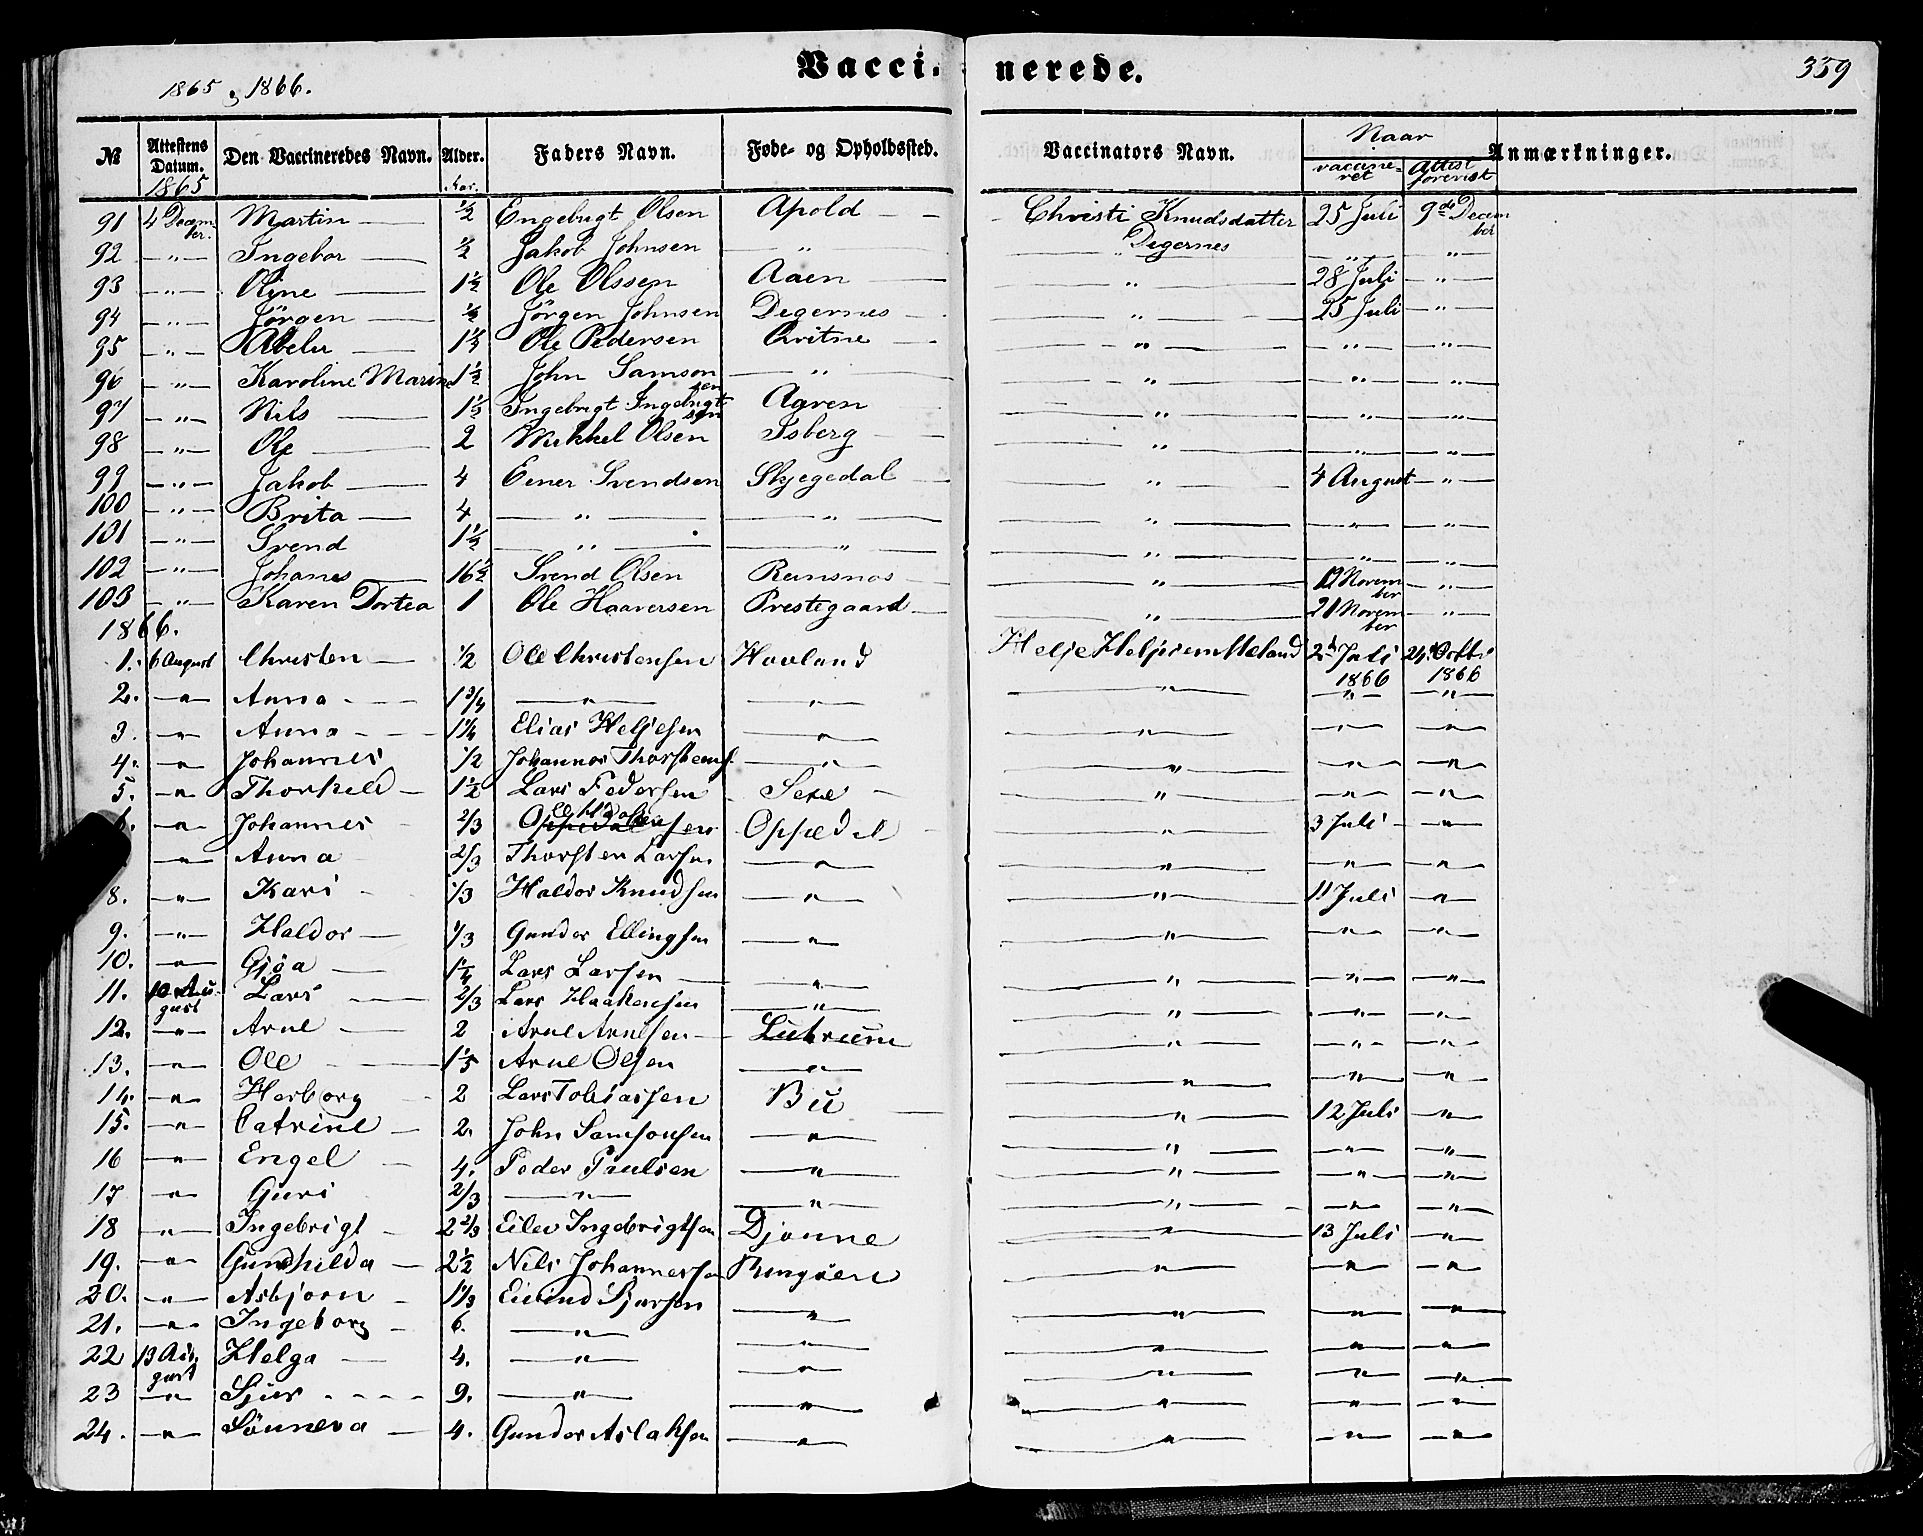 Vaccinerede.
1865 & 1866.
359
№ | Attestens Datum. | Den Vaccineredes Navn. | Alder. | Faders Navn. | Føde- og Opholdssted. | Vaccinators Navn. | Naar vaccineret | Attest forevist | Anmærkninger.
1865 | Aar.
91 | 4 December | Martin | 1/2 | Engebrigt Olsen | Apold | Christi Knudsdatter Degernes | 25 Juli | 9de December
92 | " | Ingebor | 1/2 | Jakob Johnsen | " | " | " | "
93 | " | Oline | 1 1/2 | Ole Olssen | Aaen | " | 28 Juli | "
94 | " | Jörgen | 1/2 | Jörgen Johnsen | Degernes | " | 25 Juli | "
95 | " | Abelu | 1 1/4 | Ole Pedersen | Qvitne | " | " | "
96 | " | Karoline Marine | 1 1/2 | John Samsonsen | " | " | " | "
97 | " | Nils | 1 1/2 | Ingebrigt Ingebrigtsen | Agven | " | " | "
98 | " | Ole | 2 | Mikkel Olsen | Isberg | " | " | "
99 | " | Jakob | 4 | Eener Svendsen | Skjegedal | " | 4 August | "
100 | " | Brita | 4 | " | " | " | " | "
101 | " | Svend | 1 1/2 | " | " | " | " | "
102 | " | Johanes | 16 1/2 | Svend Olsen | Reinsnos | " | 19 November | "
103 | " | Karen Dortea | 1 | Ole Haaversen | Prestegaard | " | 21 November | "
1866.
1. | 6 August | Christen | 1/2 | Ole Christensen | Hovland | Helje Heljesen Meland | 2d Juli 1866 | 24 Octbr 1866
2. | " | Anna | 1 3/4 | " | " | " | " | "
3. | " | Anna | 1 1/4 | Elias Heljesen | " | " | " | "
4. | " | Johannes | 1/2 | Johannes Thorstens. | " | " | " | "
5. | " | Thorkeld | 1 1/2 | Lars Pedersen | Sexe | " | " | "
" | Johannes | 2/3 | | Oppedal | | 3 Juli | "
" | Anna | 2/3 | Thorsten Larsen | " | " | " | "
8. | " | Kari | 1/3 | Haldor Knudsen | " | " | 11 Juli | "
9. | " | Haldor | 1/3 | Gunder Ellingsen | " | " | " | "
10. | " | Gjöa | 1 1/4 | Lars Larsen | " | " | " | "
11. | 10 August | Lars | 2/3 | Lars Haakensen | " | " | " | "
12. | " | Arne | 2 | Arne Arnesen | Lutrum | " | " | "
13. | " | Ole | 1 1/3 | Arne Olsen | " | " | " | "
14. | " | Herborg | 2 | Lars Tobiassen | Bu | " | 12 Juli | "
15. | " | Catrine | 2. | John Samsonsen | " | " | " | "
16 | " | Engel | 4. | Peder Paulsen | " | " | " | "
17 | " | Guri | 2/3 | " | " | " | " | "
18 | " | Ingebrigt | 2 2/3 | Eilev Ingebrigtsen | Djønne | " | 13 Juli | "
19. | " | Gundhilda | 2 1/2 | Nils Johannessen | Ringöen | " | " | "
20. | " | Asbjorn | 1 1/3 | Eivind Sjursen | " | " | " | "
21. | " | Ingeborg | 6. | " | " | " | " | "
22 | 13 August | Helga | 4. | " | " | " | " | "
23 | " | Sjur | 9. | " | " | " | " | "
24. | " | Sönneva | 4. | Gunder Aslaksen | " | " | " | "